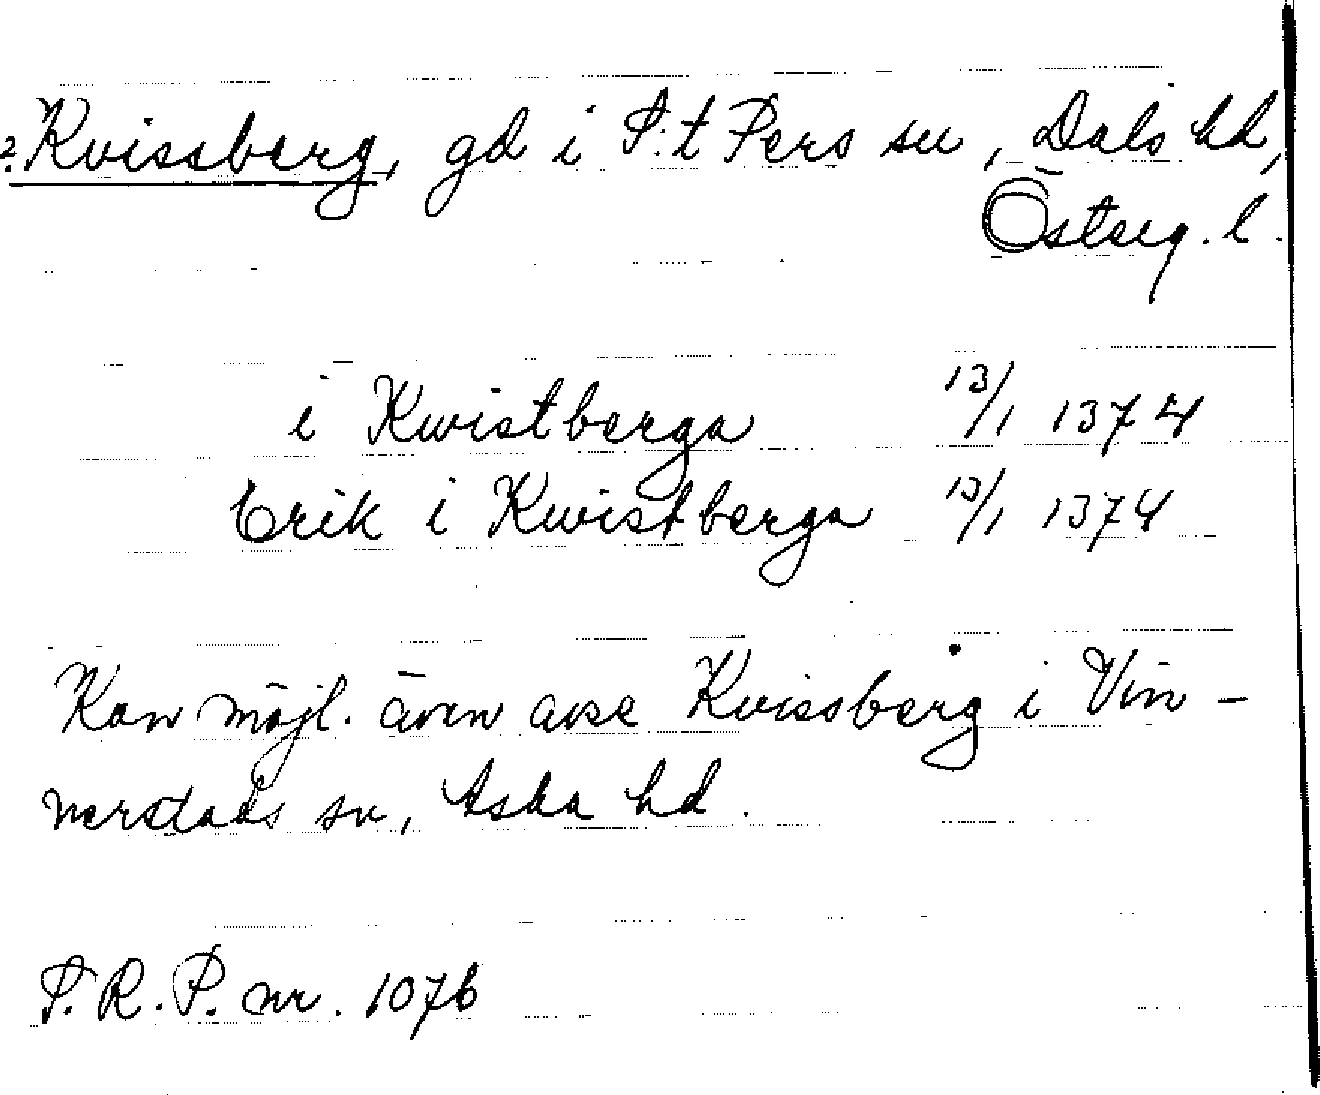 ?Kvissberg, gd i S:t Pers sn, Dals hd,
Österg. l.
i Kwistberga 13/1 1374
Erik i Kwistberga 13/1 1374
Kan möjl. även avse Kvissberg i Vin-
nerstads sn, Aska hd.
S.R.P. nr. 1076